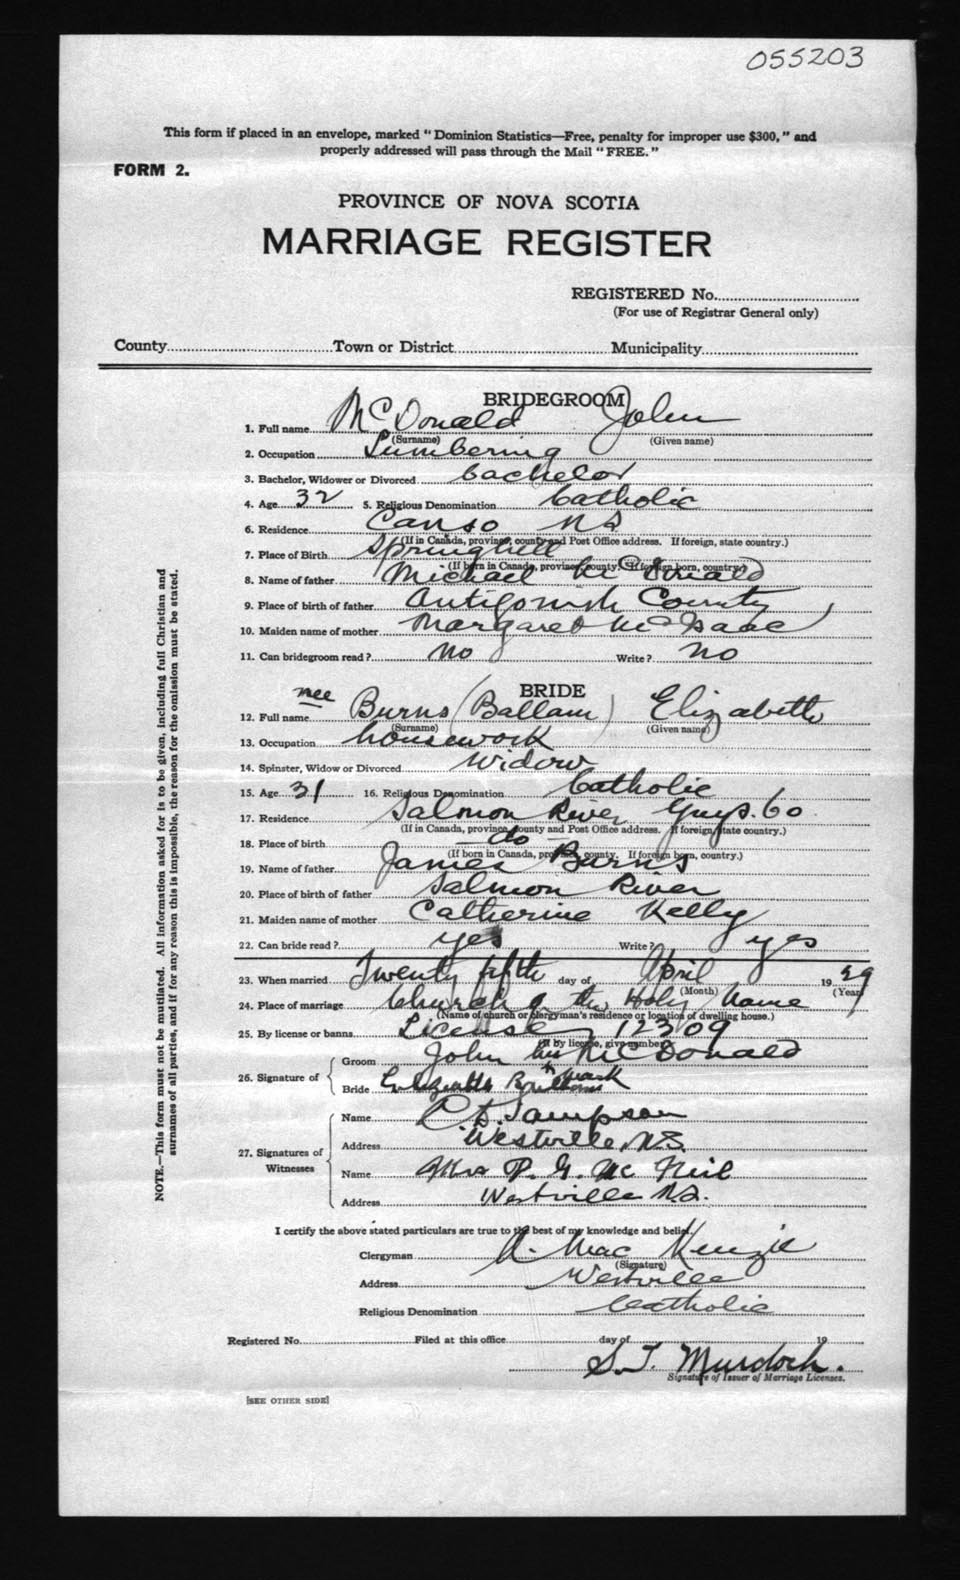 055203
This form if placed in an envelope, marked “Dominion Statistics—Free, penalty for improper use $300,” and
properly addressed will pass through the Mail “FREE.”
FORM 2.
PROVINCE OF NOVA SCOTIA
MARRIAGE REGISTER
REGISTERED No.
(For use of Registrar General only)
County Town or District Municipality
BRIDEGROOM
1. Full name McDonald John
(Surname) (Given name)
2. Occupation Lumbering
3. Bachelor, Widower or Divorced bachelor
4. Age 32 5. Religious Denomination Catholic
6. Residence Canso NS
(If in Canada, province, county and Post Office address. If foreign, state country.)
7. Place of Birth Springhill
(If born in Canada, province, county. If foreign born, country.)
8. Name of father Michael McDonald
9. Place of birth of father Antigonish County
10. Maiden name of mother Margaret McIsaac
11. Can bridegroom read? No Write? No
BRIDE
12. Full name nee Burns (Ballam) Elizabeth
(Surname) (Given name)
13. Occupation housework
14. Spinster, Widow or Divorced Widow
15. Age 31 16. Religious Denomination Catholic
17. Residence Salmon River Guys. Co
(If in Canada, province, county and Post Office address. If foreign, state country.)
18. Place of birth do
(If born in Canada, province, county. If foreign born, country.)
19. Name of father James Burns
20. Place of birth of father Salmon River
21. Maiden name of mother Catherine Kelly
22. Can bride read? yes Write? yes
23. When married Twenty fifth day of April 1929
(Month) (Year)
24. Place of marriage Church of the Holy Name
(Name of church or clergyman's residence or location of dwelling house.)
25. By license or banns License 12309
(If by license, give number)
26. Signature of Groom John his McDonald
x mark
Bride
27. Signatures of Witnesses Name Sampson
Address Westville, N.S.
Name Mrs P. G. McNeil
Address Westville N.S.
I certify the above stated particulars are true to the best of my knowledge and belief.
Clergyman R. MacKenzie
(Signature)
Address Westville
Religious Denomination Catholic
Registered No. Filed at this office day of 19
S. T. Murdoch.
Signature of Issuer of Marriage Licenses.
[SEE OTHER SIDE]
NOTE.—This form must not be mutilated. All information asked for is to be given, including full Christian and
surnames of all parties, and if for any reason this is impossible, the reason for the omission must be stated.